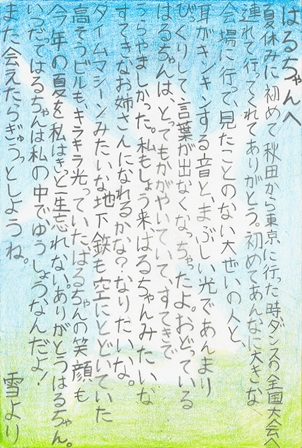 はるちゃんへ
夏休みに初めて秋田から東京に行った時ダンスの全国大会へ
連れて行ってくれてありがとう。初めてあんなに大きな
会場に行って、見たことのない大ぜいの人と、
耳がキンキンする音と、まぶしい光であんまり
びっくりして、言葉が出なくなっちゃったよ。おどっている
はるちゃんは、とってもかがやいていて、すてきで
うらやましかった。私もしょう来はるちゃんみたいな
すてきなお姉さんになれるかな?なりたいな。
タイムマシーンみたいな地下鉄も空にとどいていた
高そうビルも、キラキラ光っていたはるちゃんの笑顔も
今年の夏を私はきっと一生忘れない。ありがとうはるちゃん。
いつだてはるちゃんは私の中でゆうしょうなんだよ!
また会えたらぎゅっとしようね。
雪より